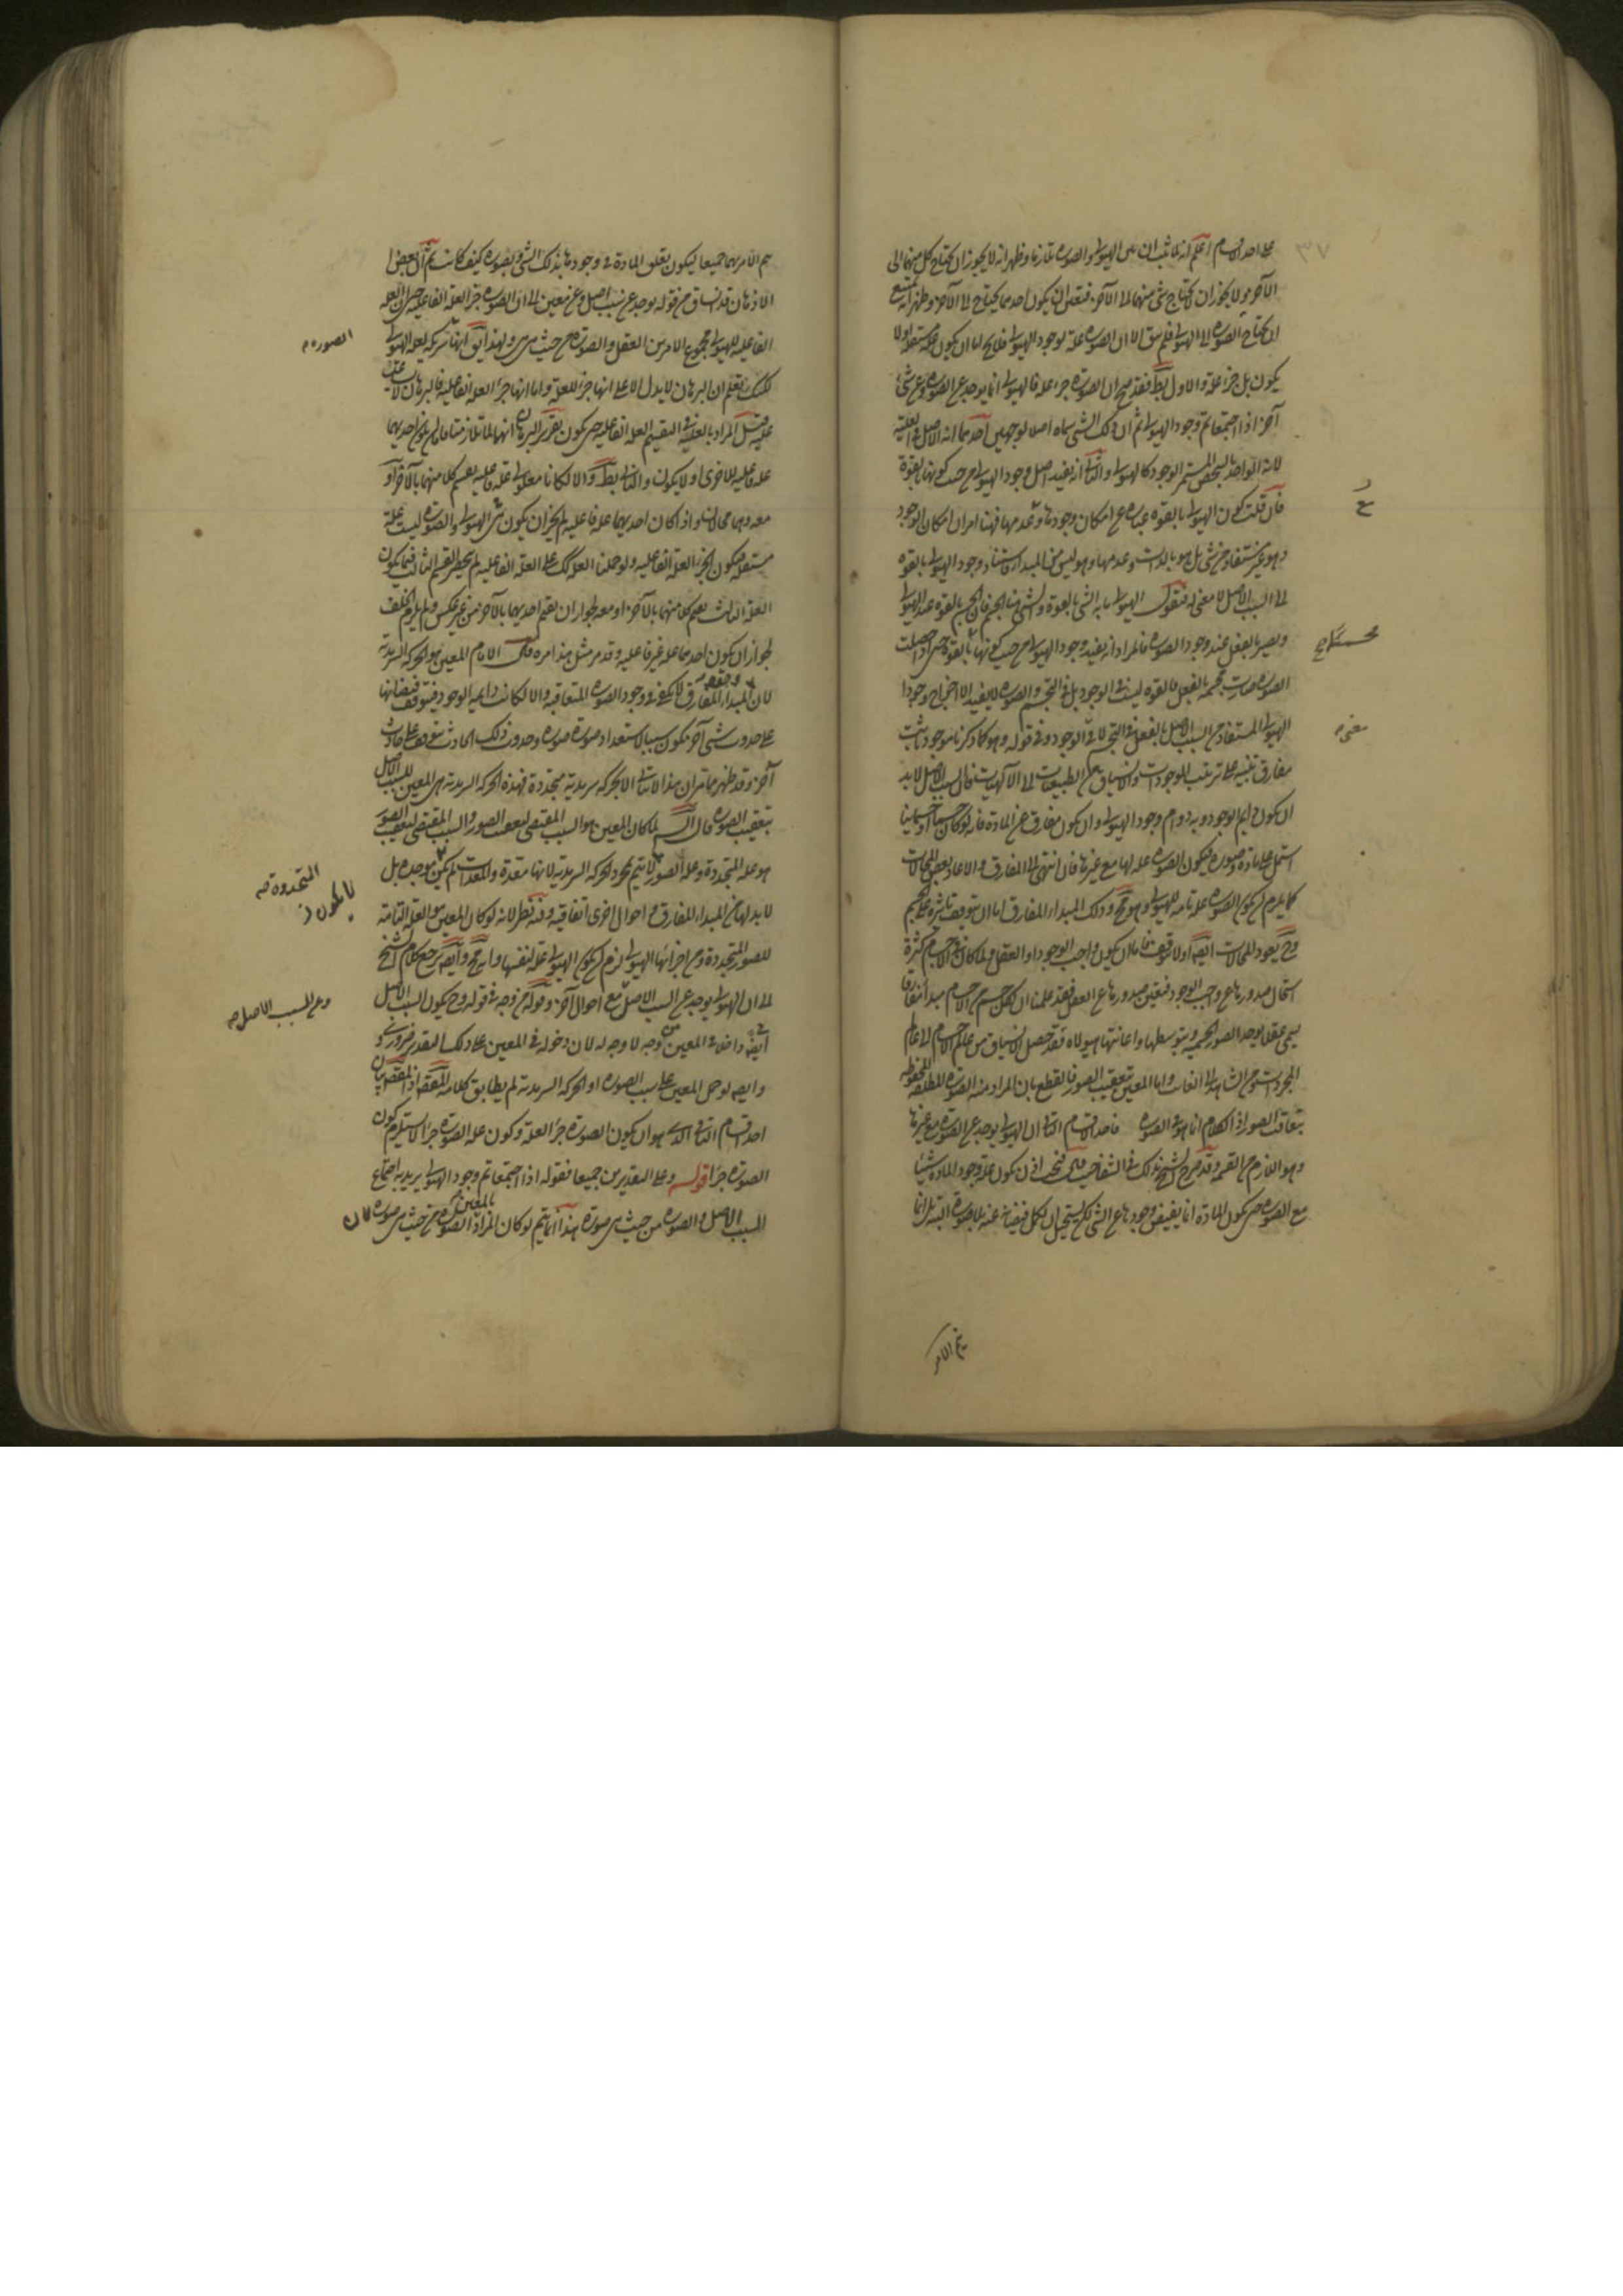 على احد الاقسام اعلم انه لما ثبت ان بين الهيولى والصورة تلازما وظهر انه لا يجوز ان يحتاج كل منهما الى
الآخر ولا يجوز ان لا يحتاج شى منهما الى الآخر فتعين ان يكون احدهما يحتاج الى الآخر وظهر انه يمتنع
ان يحتاج الصورة الى الهيولى فلم يبق الا ان الصورة علة لوجود الهيولى فلا يخ اما ان يكون علة مستقلة او لا
يكون بل جزء علة والاول بط فقد صح ان الصورة جزء علة فالهيولى انما يوجد عن الصورة وعن شى
آخر اذا اجتمعا تم وجود الهيولى ثم ان ذلك الشى سماه اصلا لوجهين احدهما انه الاصل في العلية
المستمر الوجود كالهيولى والثانى انه يفيد اصل وجود الهيولى من حيث كونها بالقوة
فان قلت كون الهيولى بالقوة عبارة عن امكان وجودها وعدمها فهنا امران امكان الوجود
وهو غير مستفاد من شى بل هو بالذات وعدمها وهو ليس من المبدا فاستناد وجود الهيولى بالقوة
الى السبب الاصل لا معنى له فنقول الهيولى ما به الشى بالقوة والشى هنا الجسم فان الجسم بالقوة عند الهيولى
ويصير بالفعل عند وجود الصورة فالمراد انه يفيد وجود الهيولى من حيث كونها بالقوة حتى اذا حصلت
الصورة صارت مجسمة بالفعل فالقوة ليست في الوجود بل في التجسم والصورة لا يفيد الا اخراج وجود
الهيولى المستفاد من السبب الاصل بالفعل في التجسم لا في الوجود وفي قوله وهو كما ذكرنا موجود ثابت
مفارق تنبيه على ترتيب الموجودات والانسياق من الطبيعيات الى الآلهيات فان السبب الاصل لابد
ان يكون دايم الوجود وبه دوام وجود الهيولى وان يكون مفارقا عن المادة فانه لو كان جسما او جسمانيا
اشتمل على مادة وصورة فيكون الصورة علة لها مع غيرها فان انتهى الى المفارق والا عاد بعض المحالات
كما يلزم ان يكون الصورة علة تامة للهيولى وهو مح وذلك المبدا المفارق اما ان يتوقف تاثيره على الجسم
وح يعود المحالات ايضا او لا يتوقف فاما ان يكون واجب الوجود او العقل ولما كان في الاجسام كثرة
استحال صدورها عن واجب الوجود فتعين صدورها عن العقل فقد علمنا ان لكل جسم من الاجسام مبدا مفارقا
يسمى عقلا يوجد الصور الجسمية وبتوسطها واعانتها هيولاه فقد حصل الانسياق من عالم الاجسام الى عالم
المجردات ومن الشاهد الى الغايب واما المعين بتعقيب الصور فالقطع بان المراد منه الصورة المطلقة المحفوظة
بتعاقب الصور اذ الكلام انما هو في الصورة فاحد الاقسام الثانى ان الهيولى يوجد عن الصورة مع غيرها
وهو اللازم من القسمة وقد صرح الشيخ بذلك في الشفا حيث قال فيجب اذن ان يكون علة وجود المادة شيئا
مع الصورة حتى يكون المادة انما يفيض وجودها عن ذلك الشى لكن يستحيل ان يكمل فيضانه عنه بلا صورة البتة بل انما
يتم الامر
محتاج
معنى
يتم الامر بهما جميعا ليكون تعلق المادة في وجودها بذلك الشى وبصورة كيف كانت ثم ان بعض
الاذهان قد انساق من قوله يوجد عن سبب اصل وعن معين الى ان الصورة جزء العلة الفاعلية حتى ان العلة
الفاعلية للهيولى مجموع الامرين العقل والصورة من حيث هى هى ولهذا يق انها شريكة لعلة الهيولى
لكنك تعلم ان البرهان لا يدل الا على انها جزء للعلة واما انها جزء العلة الفاعلية فالبرهان لا
عليه فقيل المراد بالعلية في التقسيم العلة الفاعلية حتى يكون تقرير البرهان انهما لما تلازمتا فاما ان يكون احديهما
علة فاعلية للاخرى او لا يكون والثانى بط والا لكانا معلولى علة فاعلية يقيم كلا منهما بالآخر او
معه وهما محالان واذا كان احديهما علة فاعلية لم يجز ان يكون هى الهيولى والصورة ليست علة
مستقلة فيكون جزء العلة الفاعلية ولو حملنا العلة على العلة الفاعلية لم ينحصر القسم الثالث فيما يكون
العلة الثالث يقيم كلا منهما بالآخر او معه لجواز ان يقيم احديهما بالآخر من غير عكس ولم يلزم الخلف
لجواز ان يكون احدهما علة غير فاعلية وقد مر مثل هذا مرة قال الامام المعين هو الحركة السرمدية
لان المبدا المفارق لا يكفى في وجود الصورة المتعاقبة والا لكانت دايمة الوجود فيتوقف فيضانها
على حدوث شى آخر يكون سببا لاستعداد صورة صورة وحدوث ذلك الحادث يتوقف على حادث
آخر وقد ظهر مما مر ان هذا لا يتاتى الا بحركة سرمدية متجددة فهذه الحركة السرمدية هى المعين للسبب الاصل
بتعقيب الصورة قال الش لما كان المعين هو السبب المقتضى لتعقيب الصور والسبب المقتضى لتعقيب الصور
هو علة المتجددة وعلة الصور لا يتم بمجرد الحركة السرمدية لانها معدة والمعدات لم يكن موجدة بل
لابد لها من المبدا المفارق واحوال اخرى اتفاقية وفيه نظر لانه لو كان المعين هو العلة التامة
للصور المتجددة ومن اجزائها الهيولى لزم ان يكون الهيولى علة لنفسها وانه مح وايضا يرجع كلام الشيخ
الى ان الهيولى يوجد عن السبب الاصل مع احوال آخر وقوله من وجه في قوله وح يكون السبب الاصل
ايضا داخلا في المعين من وجه لا وجه له لان دخوله في المعين على ذلك التقدير ضرورى
وايضا لو حمل المعين على سبب الصورة او الحركة السرمدية لم يطابق كلامه المقصد اذ المقصد بيان
احد اقسام الثانى الذى هو ان يكون الصورة جزء العلة وكون علة الصورة جزءا لا يستلزم كون
الصورة جزءا قوله وعلى التقديرين جميعا فقوله اذا اجتمعا تم وجود الهيولى يريد به اجتماع
السبب الاصل والصورة من حيث هى صورة هذا انما يتم لو كان المراد بالمعين الصورة من حيث هى صورة لان
الصورة
المتجددة صه
وعن السبب الاصل صه